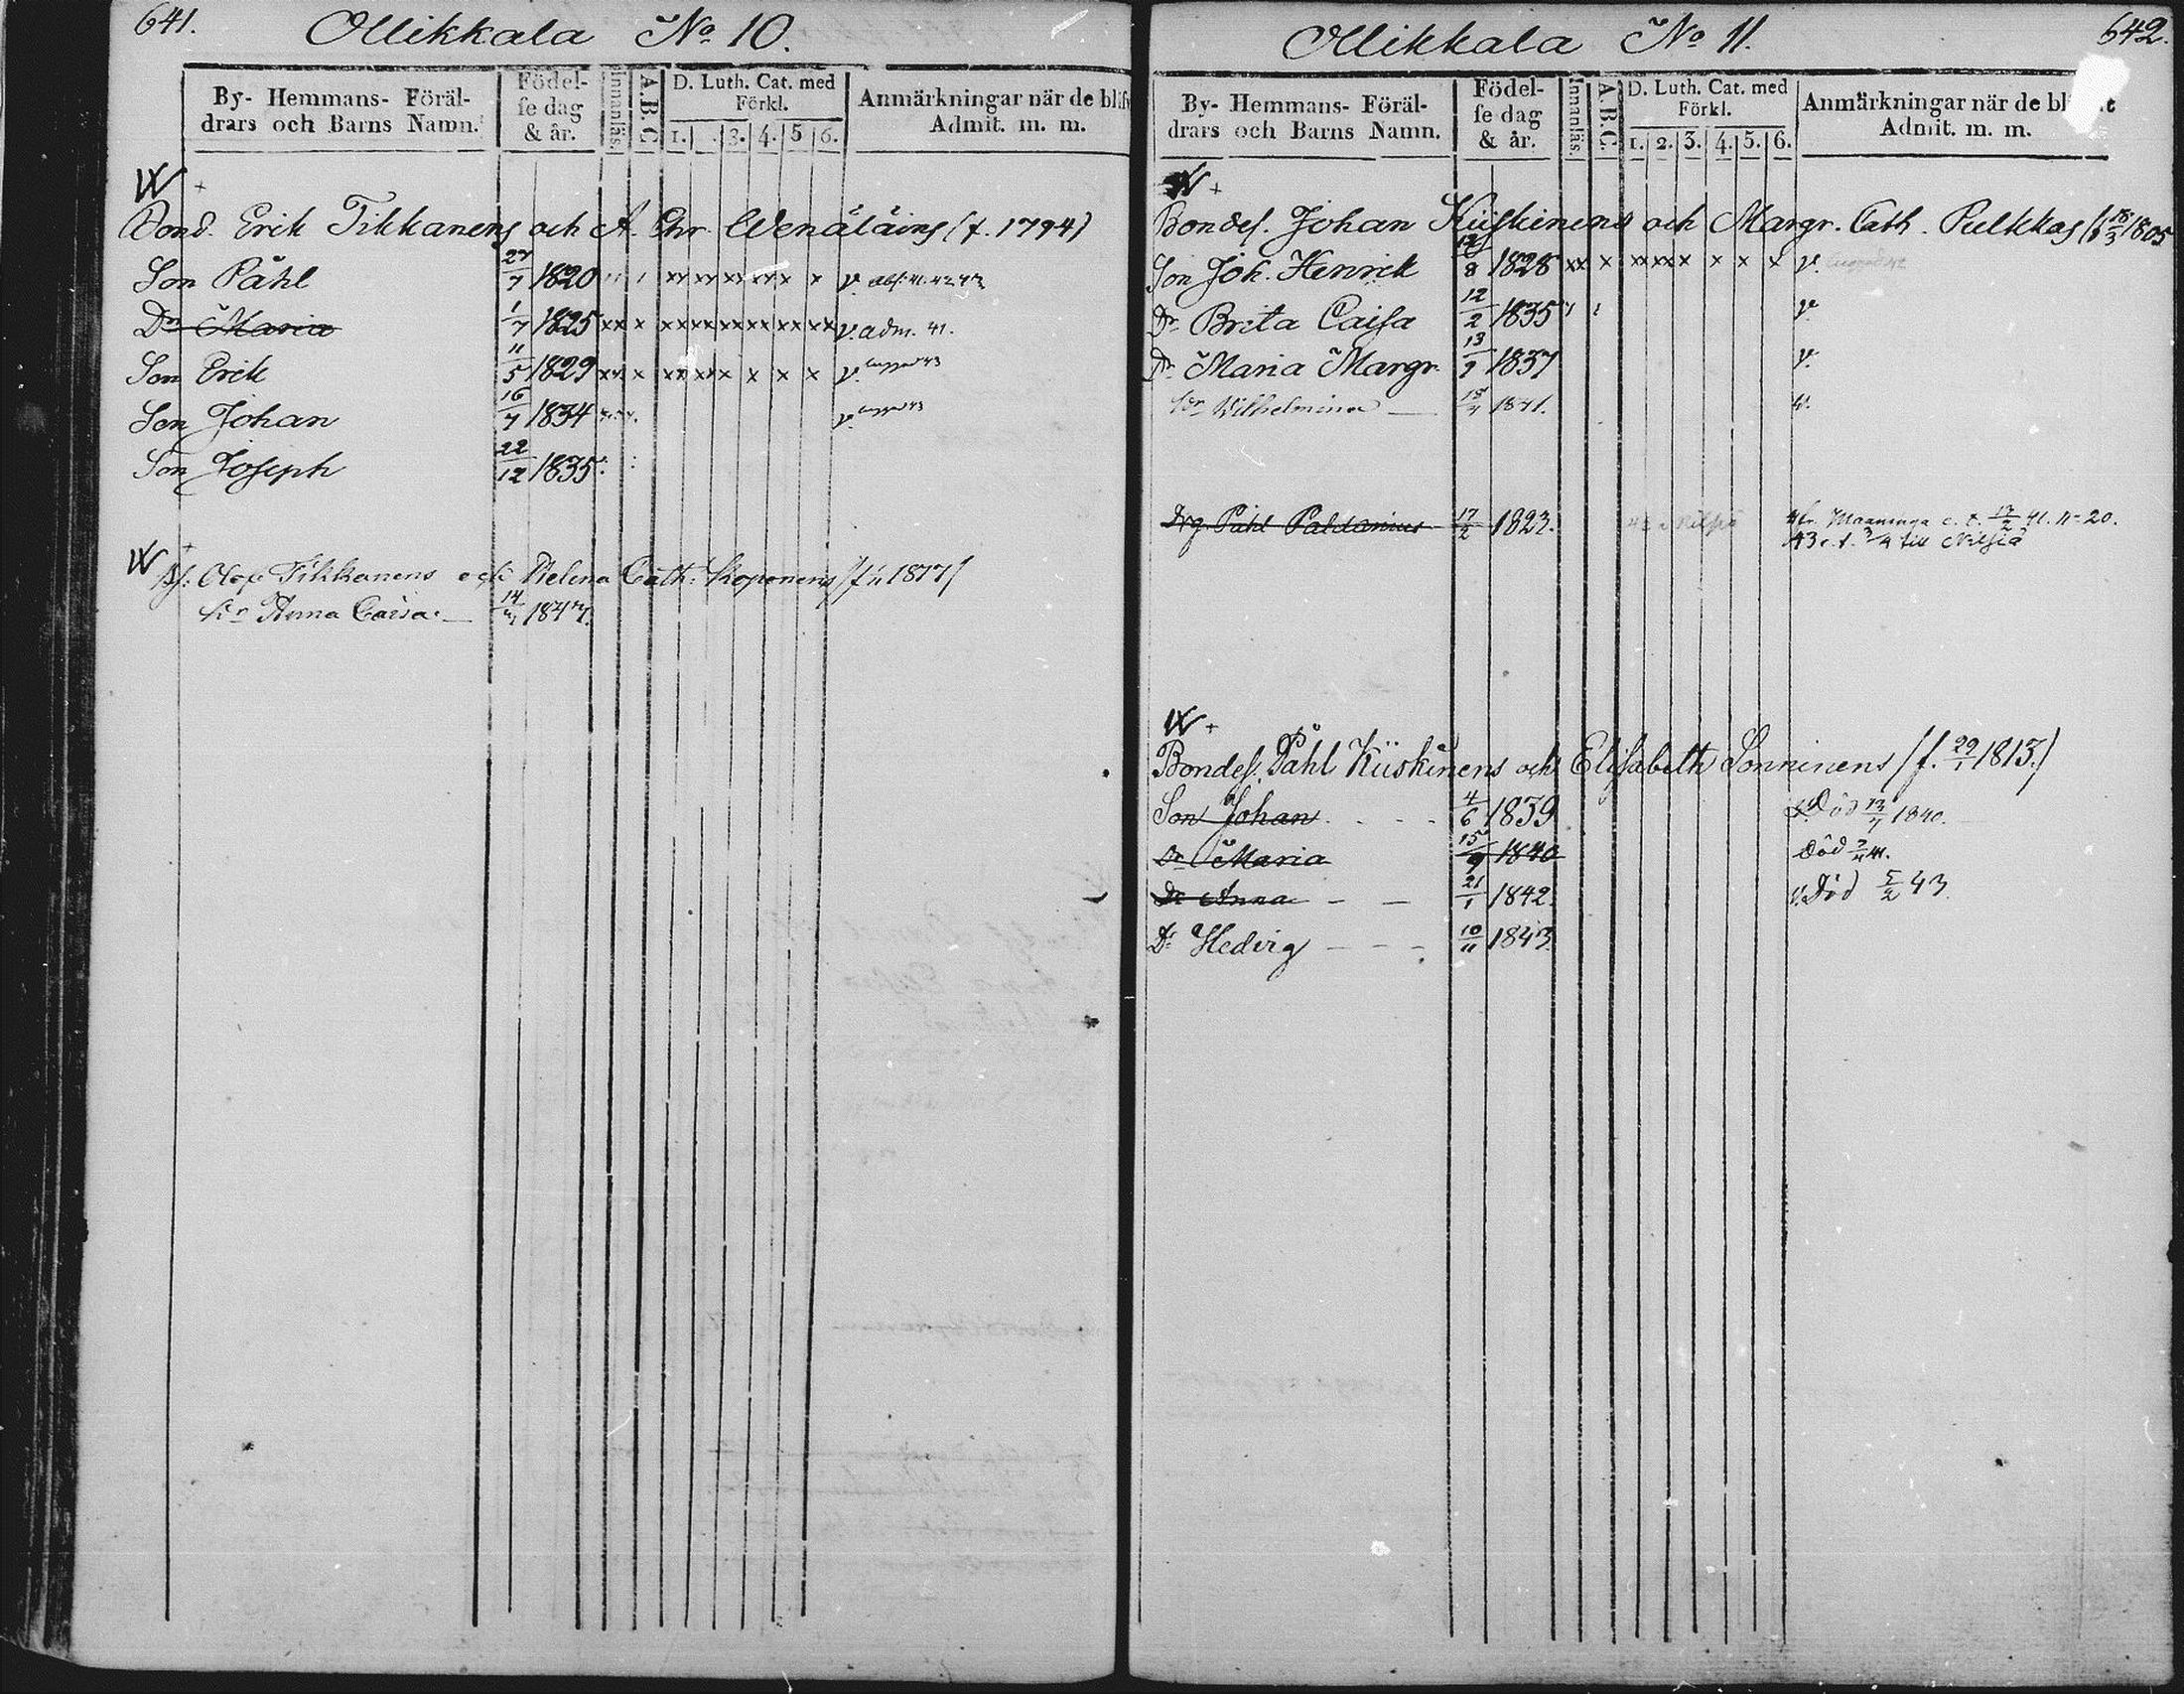 641.
Ollikkala No 10.
By- Hemmans- Föräl-
drars och Barns Namn.
Födel-
se dag
& år.
Innanläs.
A.B.C
D. Luth. Cat. med
Förkl.
1. 3. 4. 5 6.
Anmärkningar när de blifv
Admit. m. m.
W +
Bond. Erik Tikkanens och A. Chr. Wenäläins (f. 1794)
Son Påhl 27/7 1820 xx xx xx xx x x v.
Dr Maria 1/7 1825 xx x xx xx xx xx xx xx v. adm. 41.
Son Erik 11/5 1829 xx x xx xx x x x x v.
Son Johan 16/7 1834 v.
Son Joseph 22/12 1835
W +
Olof Tikkanens och Helena Cath: Koponens /f. 1817/
Dr Anna Caisa 14/
642.
Ollikkala No 11.
By- Hemmans- Föräl-
drars och Barns Namn.
Födel-
se dag
& år.
Innanläs.
A.B.C.
D. Luth. Cat. med
Förkl.
1. 2. 3. 4. 5. 6.
Anmärkningar när de bl
Admit. m. m.
W +
Bondes. Johan Kiiskinens och Margr. Cath. Pulkkas (f 18/3 1805
Son Joh. Henrik 8 1828 xx x xx xx x x x x v.
Dr Brita Caisa 12/2 1835 v
Dr Maria Margr. 13/9 1837 v.
Dr Wilhelmina 18/4 1841. v.
Drg. Påhl Paldanius 17/2 1823. fr. Maaninga c. t. 13/2 41. n- 20.
43 c. t. 3/4 till Nilsiä
W +
Bondes. Påhl Kiiskinens och Elisabeth Sonninens /f. 29/1 1813./
Son Johan 4/6 1839 Död 13/7 1840.
Dr Maria 15/9 1840 Död 41.
Dr Anna 21/1 1842. v. Död 5/2 43
Dr Hedvig 10/11 1843.